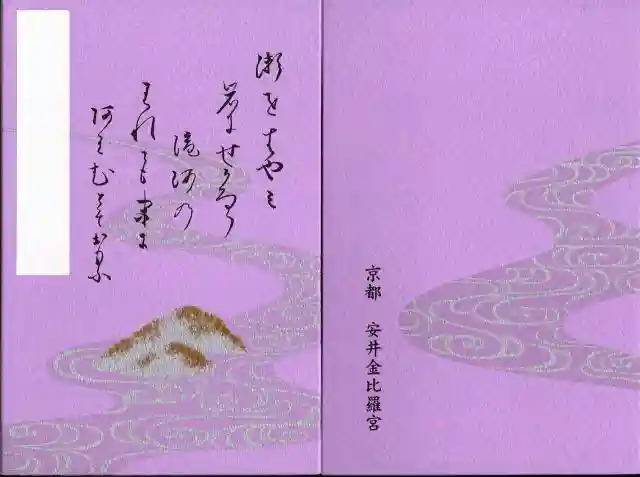 瀬をはやみ
岩にせかるゝ
瀧河の
われても末に
阿はむとそおもふ
京都　安井金比羅宮